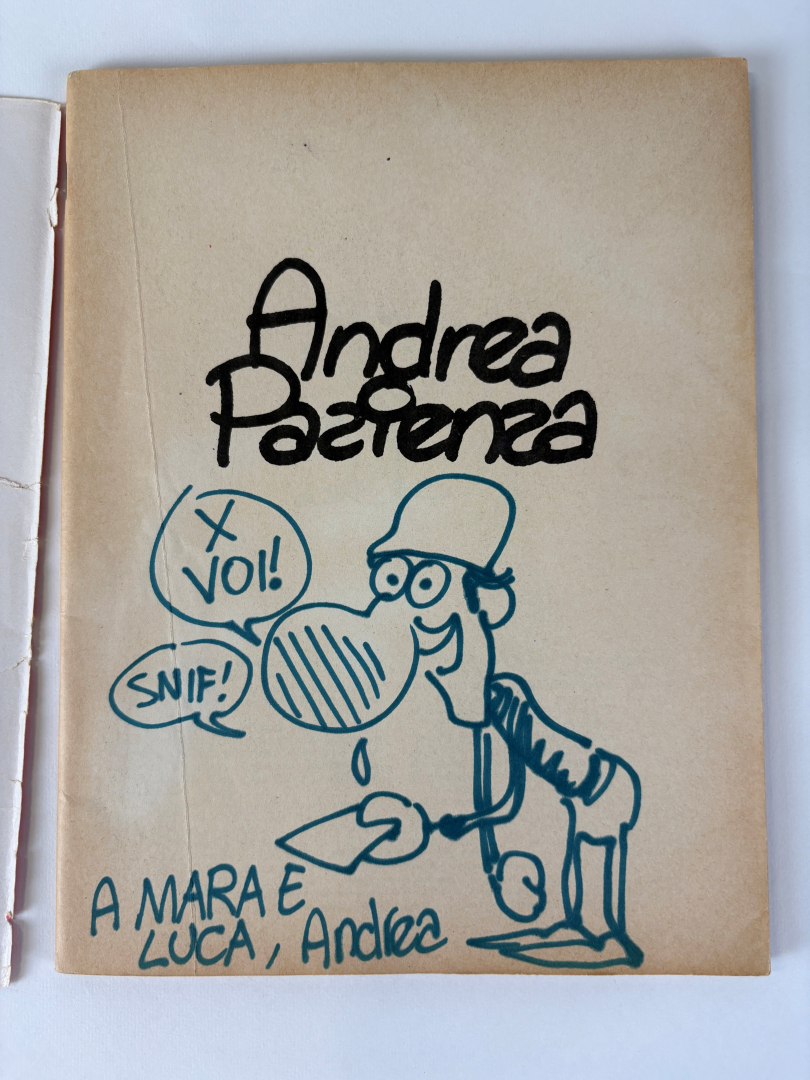 Andrea
Pazienza
X
VOI!
SNIF!
A MARA E
LUCA, Andrea